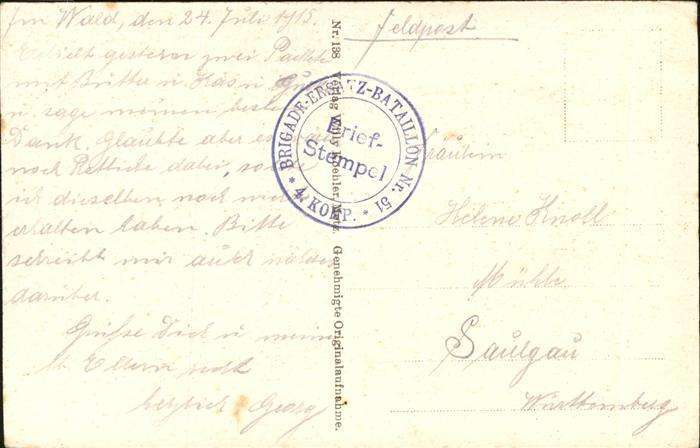 Im Wald, den 24. Juli 1915.
Erhielt gestern zwei Packete
mit Butter u. Käs u.
u. sage meinen besten
Dank. Glaubte aber es
noch Rettiche dabei, so
ich dieselben noch
erhalten haben. Bitte
schreibt mir auch
darüber.
Grüße Dich u. meine
lb. Eltern recht
herzlich Georg
Nr. 138 Verlag Willy Metz. Genehmigte Originalaufnahme.
BRIGADE-ERSATZ-BATAILLON Nr. 51
* 4. KOMP. *
Brief-
Stempel
Feldpost
Fräulein
Helene Knoll
Mühle
Saulgau
Württemberg